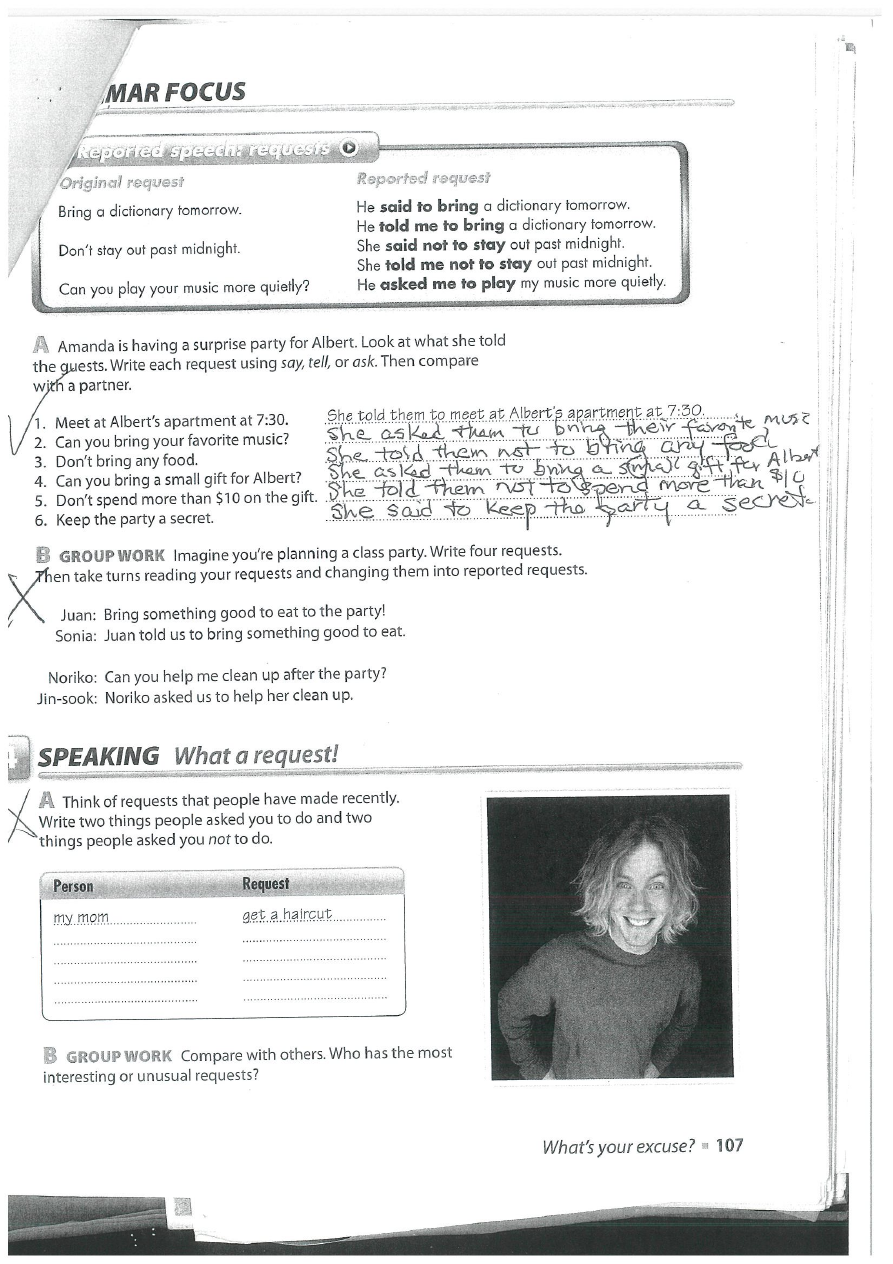 MAR FOCUS
Reported speech: requests
Original request
Reported request
Bring a dictionary tomorrow.
He said to bring a dictionary tomorrow.
He told me to bring a dictionary tomorrow.
Don't stay out past midnight.
She said not to stay out past midnight.
She told me not to stay out past midnight.
Can you play your music more quietly?
He asked me to play my music more quietly.
A Amanda is having a surprise party for Albert. Look at what she told
the guests. Write each request using say, tell, or ask. Then compare
with a partner.
1. Meet at Albert's apartment at 7:30. She told them to meet at Albert's apartment at 7:30.
2. Can you bring your favorite music? She asked them to bring their favorite music
3. Don't bring any food. She told them not to bring any food
4. Can you bring a small gift for Albert? She asked them to bring a small gift for Albert
5. Don't spend more than $10 on the gift. She told them not to spend more than $10
6. Keep the party a secret. She said to keep the party a secret
B GROUP WORK Imagine you're planning a class party. Write four requests.
Then take turns reading your requests and changing them into reported requests.
Juan: Bring something good to eat to the party!
Sonia: Juan told us to bring something good to eat.
Noriko: Can you help me clean up after the party?
Jin-sook: Noriko asked us to help her clean up.
4 SPEAKING What a request!
A Think of requests that people have made recently.
Write two things people asked you to do and two
things people asked you not to do.
Person Request
my mom get a haircut
B GROUP WORK Compare with others. Who has the most
interesting or unusual requests?
What's your excuse? 107